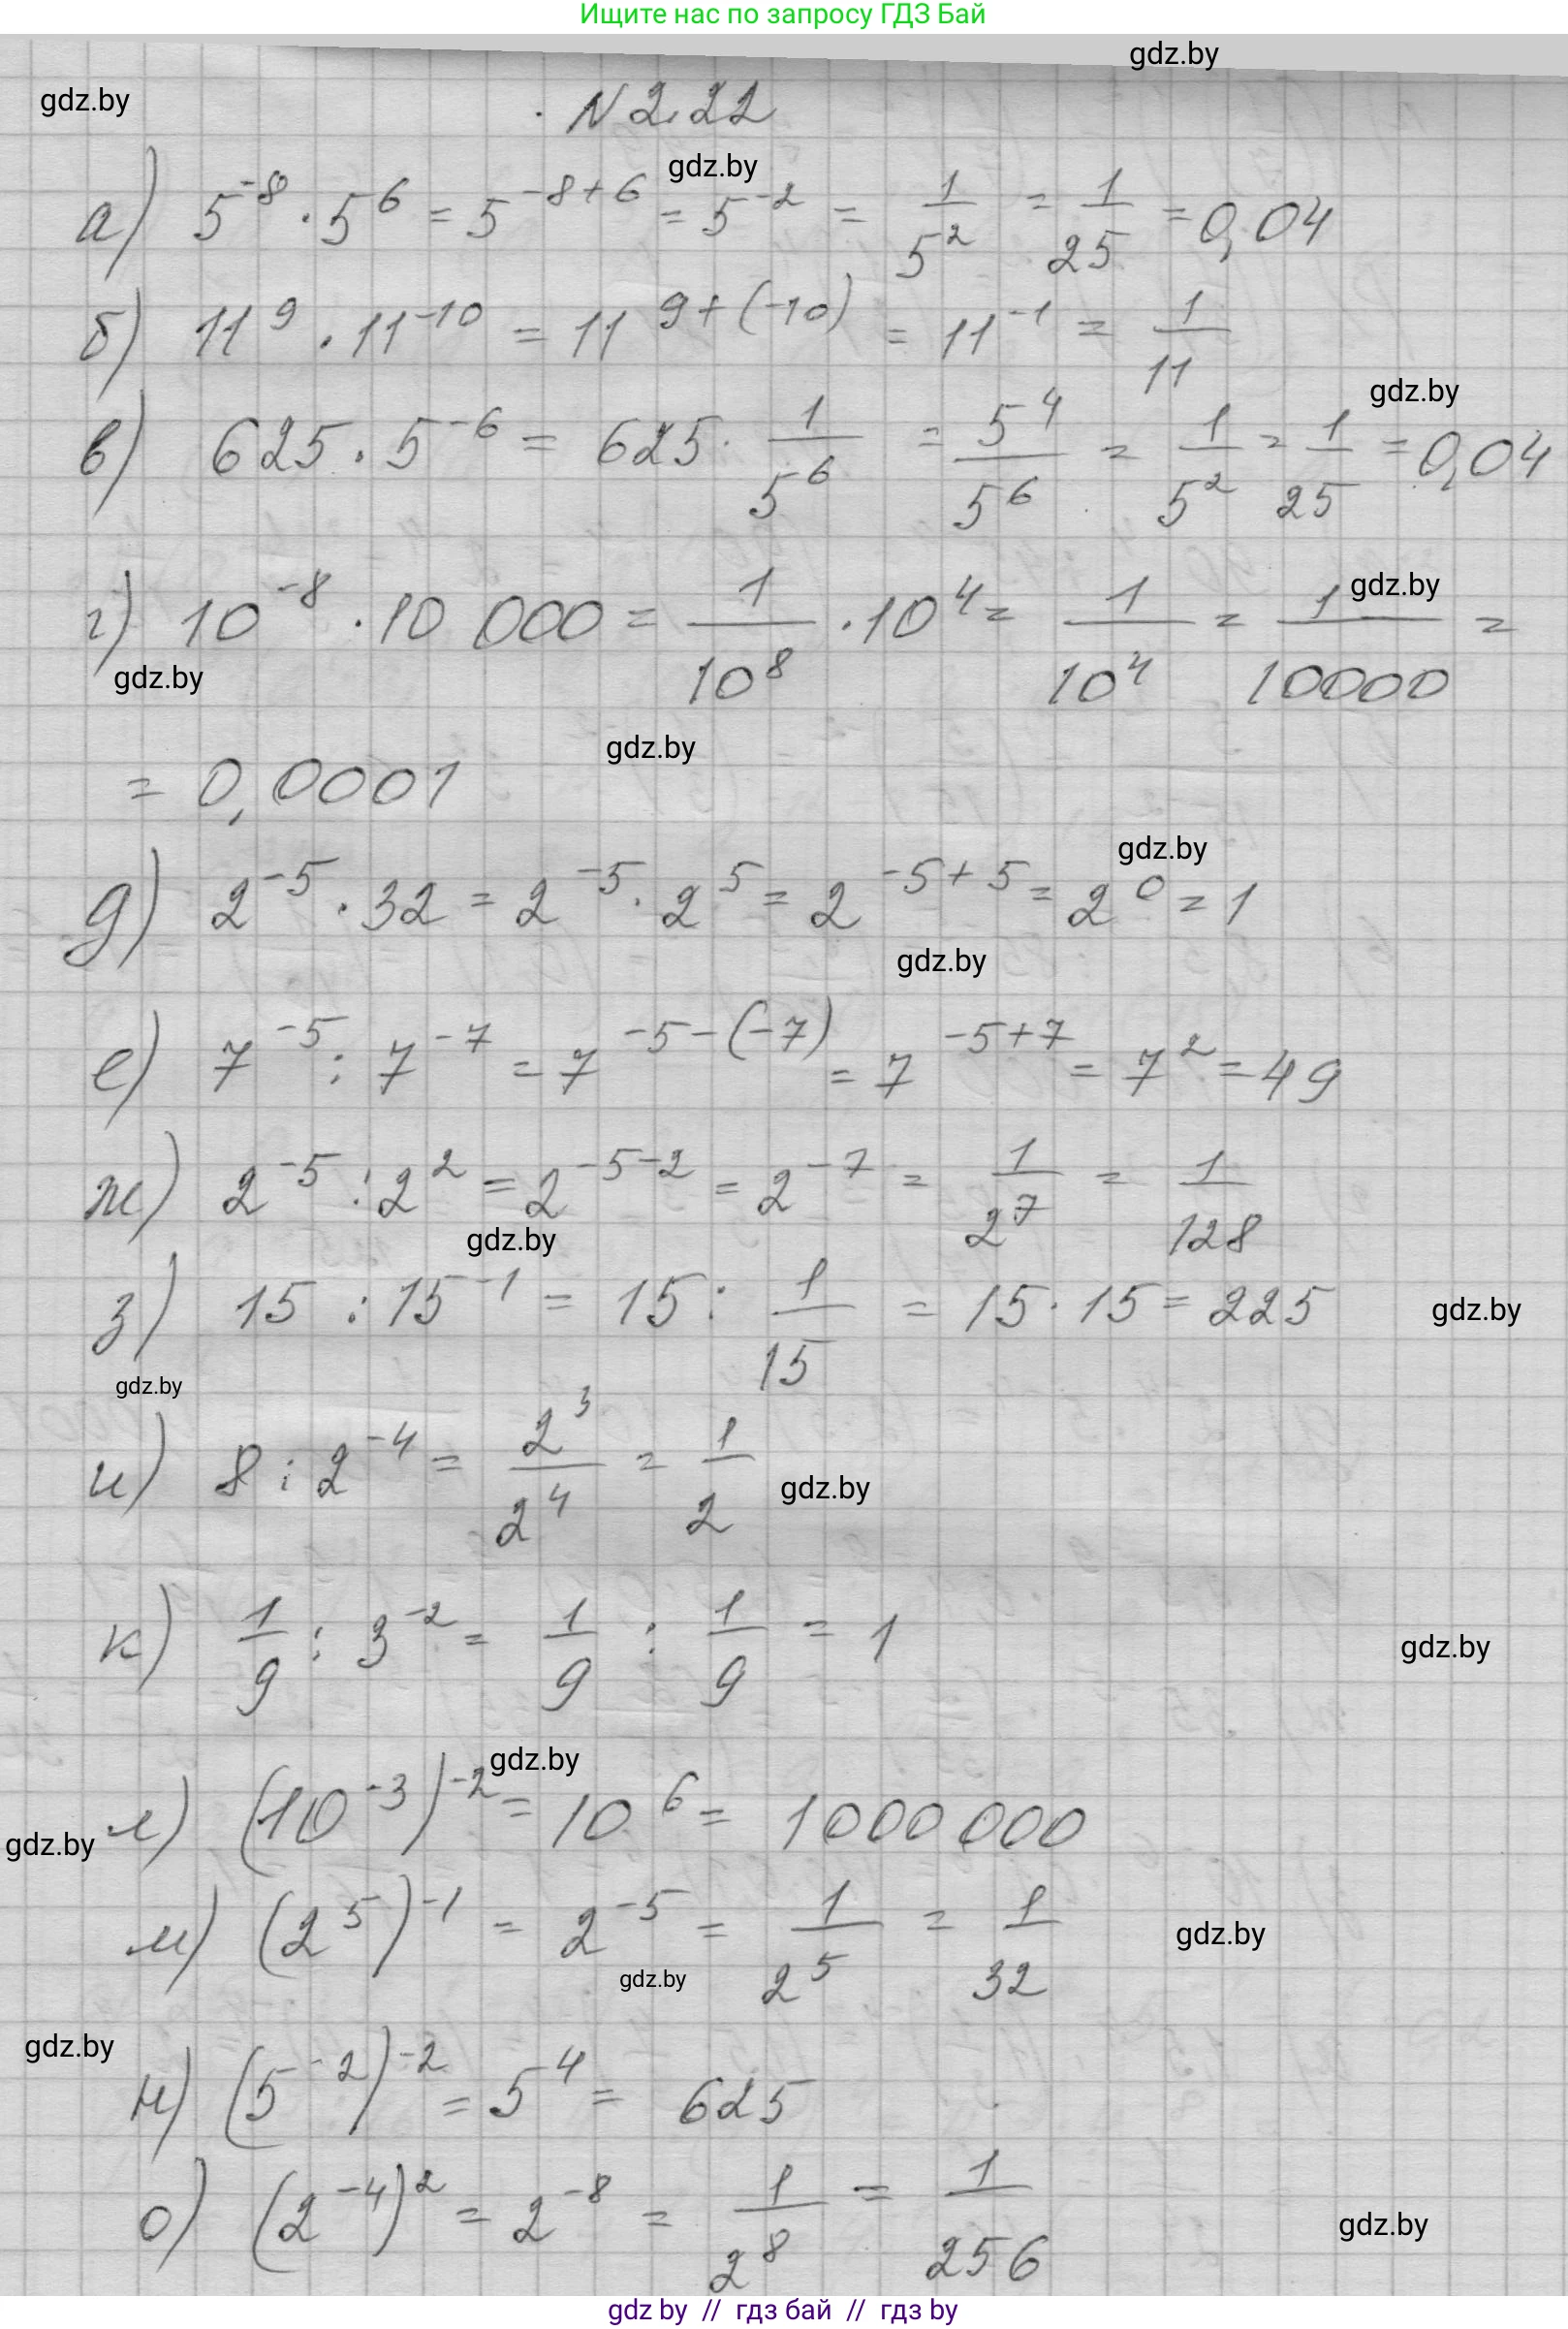 Ищите нас по запросу ГДЗ Бай
gdz.by
gdz.by
N 2.22
gdz.by
а) 5^-8 · 5^6 = 5^-8+6 = 5^-2 = 1/5^2 = 1/25 = 0,04
б) 11^9 · 11^-10 = 11^9+(-10) = 11^-1 = 1/11
gdz.by
в) 625 · 5^-6 = 625 · 1/5^6 = 5^4/5^6 = 1/5^2 = 1/25 = 0,04
gdz.by
г) 10^-8 · 10 000 = 1/10^8 · 10^4 = 1/10^4 = 1/10000 =
gdz.by
gdz.by
= 0,0001
gdz.by
д) 2^-5 · 32 = 2^-5 · 2^5 = 2^-5+5 = 2^0 = 1
gdz.by
е) 7^-5 : 7^-7 = 7^-5-(-7) = 7^-5+7 = 7^2 = 49
ж) 2^-5 : 2^2 = 2^-5-2 = 2^-7 = 1/2^7 = 1/128
gdz.by
з) 15 : 15^-1 = 15 : 1/15 = 15 · 15 = 225
gdz.by
gdz.by
и) 8 : 2^-4 = 2^3/2^4 = 1/2
gdz.by
к) 1/9 : 3^-2 = 1/9 : 1/9 = 1
gdz.by
gdz.by
л) (10^-3)^-2 = 10^6 = 1000 000
gdz.by
м) (2^5)^-1 = 2^-5 = 1/2^5 = 1/32
gdz.by
gdz.by
gdz.by
н) (5^-2)^-2 = 5^4 = 625
о) (2^-4)^2 = 2^-8 = 1/2^8 = 1/256
gdz.by
gdz by // гдз бай // гдз by